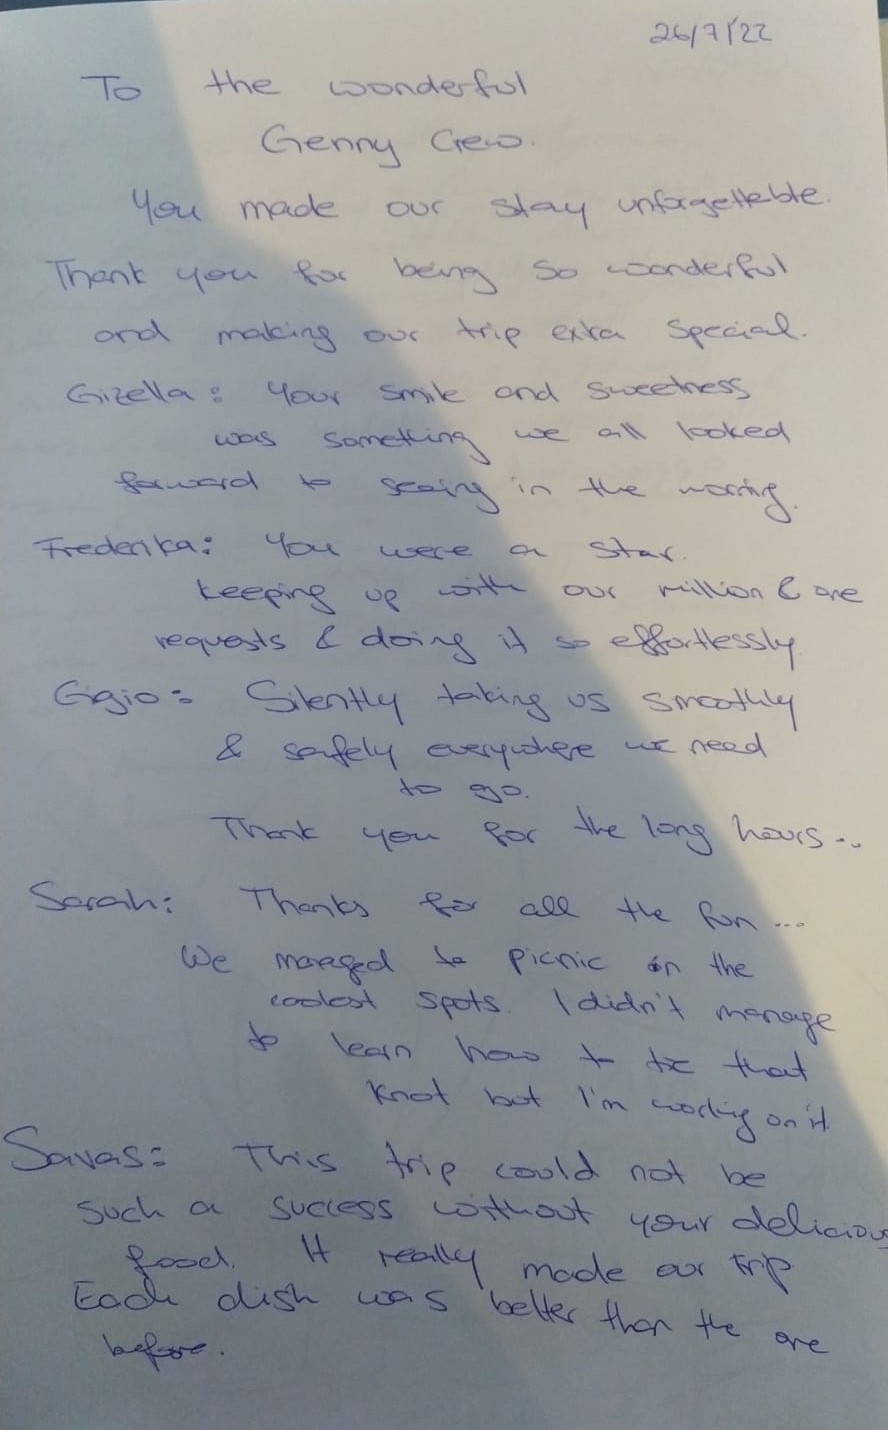 26/7/22
To the wonderful
Genny Crew.
You made our stay unforgettable.
Thank you for being so wonderful
and making our trip extra special.
Gizella: Your smile and sweetness
was something we all looked
forward to seeing in the morning.
Frederika: You were a star.
keeping up with our million & one
requests & doing it so effortlessly
Gigio: Silently taking us smoothly
& safely everywhere we need
to go.
Thank you for the long hours...
Sarah: Thanks for all the fun ...
We managed to picnic in the
coolest spots. I didn't manage
to learn how to tie that
knot but I'm working on it.
Savas: This trip could not be
such a success without your delicious
food. It really made our trip
Each dish was better than the one
before.